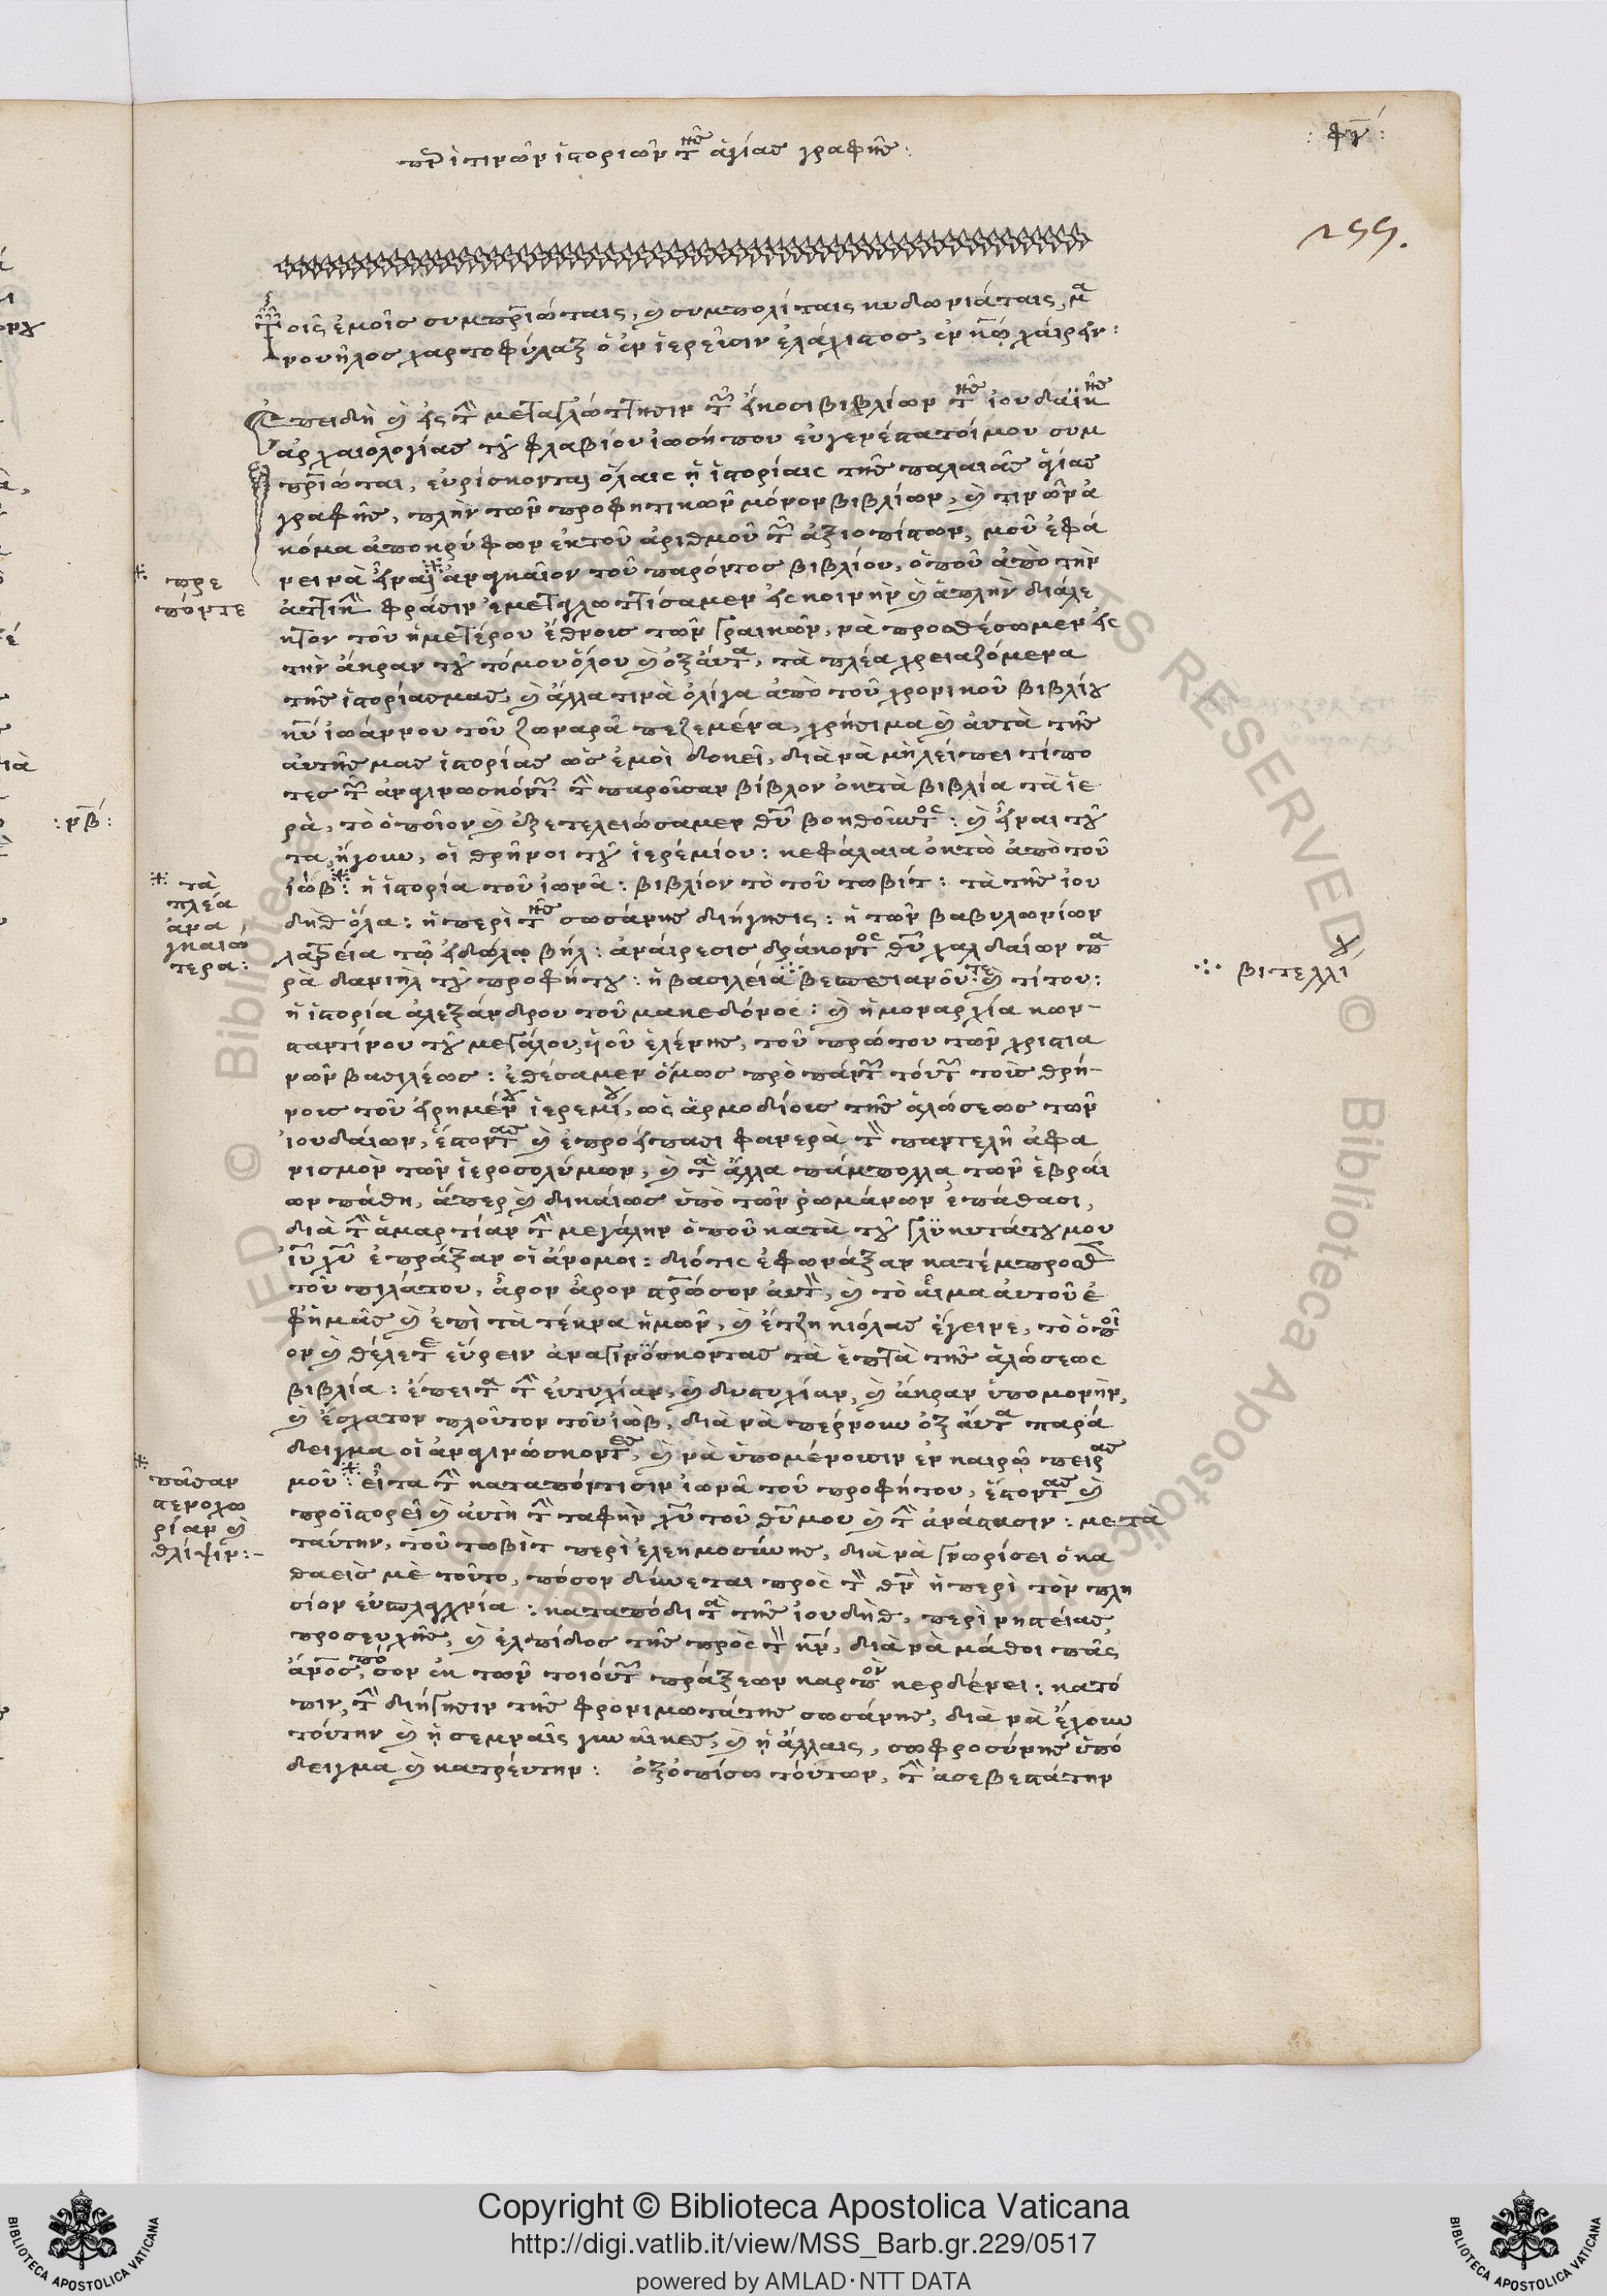 περὶ τινῶν ἱστοριῶν τῆς ἁγίας γραφῆς:
: φιγ :
255.
Τοῖς ἐμοῖς συμπατριώταις, καὶ συμπολίταις κυδωνιάταις, μα
νουῆλος χαρτοφύλαξ ὁ ἐν ἱερεῦσιν ἐλάχιστος, ἐν κῳ χαίρειν:
Ἐπειδὴ καὶ εἰς τὴν μεταγλώττησιν τῶν εἴκοσι βιβλίων τῆς ἰουδαϊκῆς
ἀρχαιολογίας τοῦ φλαβίου ἰωσήπου εὐγενέστατοί μου συμ
πατριώται, εὑρίσκονται ὅλαις ᾑ ἱστορίαις τῆς παλαιᾶς ἁγίας
γραφῆς, πλὴν τῶν προφητικῶν μόνον βιβλίων, καὶ τινῶν ἀ
κόμα ἀποκρύφων ἐκτοῦ ἀριθμοῦ τῶν ἀξιοπίστων, μοῦ ἐφά
νει νὰ εἶναι ἀναγκαῖον τοῦ παρόντος βιβλίου, ὁποῦ ἀπὸ τὴν
πρε
πόντε
ἀττικὴν φράσιν ἐμεταγλωττίσαμεν εἰς κοινὴν καὶ ἁπλὴν διάλε
κτον τοῦ ἡμετέρου ἔθνους τῶν γραικῶν, νὰ προσθέσωμεν εἰς
τὴν ἄκραν τοῦ τόμου ὅλου καὶ ἐξ αὐτὰ, τὰ πλέα χρειαζόμενα
τῆς ἱστορίας μας, καὶ ἄλλα τινὰ ὀλίγα ἀπὸ τοῦ χρονικοῦ βιβλίου
κυροῦ ἰωάννου τοῦ ζωναρᾶ πεζεμένα, χρήσιμα καὶ αὐτὰ τῆς
αὐτῆς μας ἱστορίας ὡς ἐμοὶ δοκεῖ, διὰ νὰ μὴ λείπει τίπο
τες τῶν ἀναγινωσκόντων τὴν παροῦσαν βίβλον ὀκτὰ βιβλία τὰ ἱε
ρὰ, τὸ ὁποῖον καὶ ἐξετελειώσαμεν θυ βοηθοῦντος: καὶ εἶναι τοῦ
τα, ἤγουν, οἱ θρῆνοι τοῦ ἱερεμίου: κεφάλαια ὀκτὼ ἀπὸ τοῦ
ἰώβ: ἡ ἱστορία τοῦ ἰωνᾶ: βιβλίον τὸ τοῦ τωβίτ: τὰ τῆς ἰου
τὰ
πλέα
ἀνα
γκαιω
τερα:
δὴθ ὅλα: ἡ περὶ τῆς σωσάνης διήγησις: ἡ τῶν βαβυλωνίων
λατρεία τῷ εἰδώλῳ βήλ: ἀναίρεσις δράκοντος θυ χαλδαίων πα
ρὰ δανιὴλ τοῦ προφήτου: ἡ βασιλεία βεσπεσιανοῦ τε καὶ τίτου:
βιτελλίου
ἡ ἱστορία ἀλεξάνδρου τοῦ μακεδόνος: καὶ ἡ μοναρχία κων-
σταντίνου τοῦ μεγάλου, ὑιοῦ ἑλένης, τοῦ πρώτου τῶν χριστια
νῶν βασιλέως: ἐθέσαμεν ὅμως πρὸ πάντων τούτων τοῖς θρή-
νοις τοῦ εἰρημένου ἱερεμίου, ὡς ἁρμοδίοις τῆς ἁλώσεως τῶν
ἰουδαίων, ἔστοντας καὶ ἐπροείπασι φανερὰ τὸν παντελῆ ἀφα
νισμὸν τῶν ἱεροσολύμων, καὶ τὰ ἄλλα πάμπολλα τῶν ἑβραί
ων πάθη, ἅπερ καὶ δικαίως ὑπὸ τῶν ῥωμάνων ἐπάθασι,
διὰ τὴν ἁμαρτίαν τὴν μεγάλην ὁποῦ κατὰ τοῦ γλϋκυτάτου μου
ιυ χυ ἐπράξαν οἱ ἄνομοι: διότις ἐφωνάξαν κατέμπροσθεν
τοῦ πιλάτου, ἆρον ἆρον σταύρωσον αὐτὸν, καὶ τὸ αἷμα αὐτοῦ ἐ
φἡμᾶς καὶ ἐπὶ τὰ τέκνα ἡμῶν, καὶ ἔτζη κιόλας ἔγεινε, τὸ ὁποῖ
ον καὶ θέλετε εὕρειν ἀναγινώσκοντας τὰ ἑπτὰ τῆς ἁλώσεως
βιβλία: ἔπειτα τὴν εὐτυχίαν, καὶ δυστυχίαν, καὶ ἄκραν ὑπομονὴν,
καὶ ἔσχατον πλοῦτον τοῦ ἰὼβ, διὰ νὰ πέρνουν ἐξ αὐτὰ παρά
δειγμα οἱ ἀναγινώσκοντες, καὶ νὰ ὑπομένουσιν ἐν καιρῷ πειρας
μοῦ: εἶτα τὴν καταπόντισιν ἰωνᾶ τοῦ προφήτου, ἔστοντας καὶ
πᾶσαν
στενοχω
ρίαν καὶ
θλίψιν:-
προϊστορεῖ καὶ αὐτὴ τὴν ταφὴν χυ τοῦ θυ μου καὶ τὴν ἀνάστασιν: μετὰ
ταύτην, τοῦ τωβὶτ περὶ ἐλεημοσύνης, διὰ νὰ γνωρίσει ὁ κα
θαεὶς μὲ τοῦτο, πόσον δύνεται πρὸς τὸν θν ἡ περὶ τὸν πλη
σίον εὐσπλαγχνία: καταπόδι τὰ τῆς ἰουδὴθ, περὶ νηστείας,
προσευχῆς, καὶ ἐλπίδος τῆς πρὸς τὸν κν, διὰ νὰ μάθοι πᾶς
ἄνος, πόσον ἐκ τῶν τοιούτων πράξεων καρπὸν κερδένει: κατό
πιν, τὴν διήγησιν τῆς φρονιμωτάτης σωσάνης, διὰ νὰ ἔχουν
τούτην καὶ ᾑ σεμναῖς γυναῖκες, καὶ ᾑ ἄλλαις, σωφροσύνης ὑπό
δειγμα καὶ κατρέυτην: ἐξοπίσω τούτων, τὴν ἀσεβεστάτην
: ρβ :
Copyright © Biblioteca Apostolica Vaticana
http://digi.vatlib.it/view/MSS_Barb.gr.229/0517
powered by AMLAD·NTT DATA
BIBLIOTECA APOSTOLICA VATICANA
BIBLIOTECA APOSTOLICA VATICANA